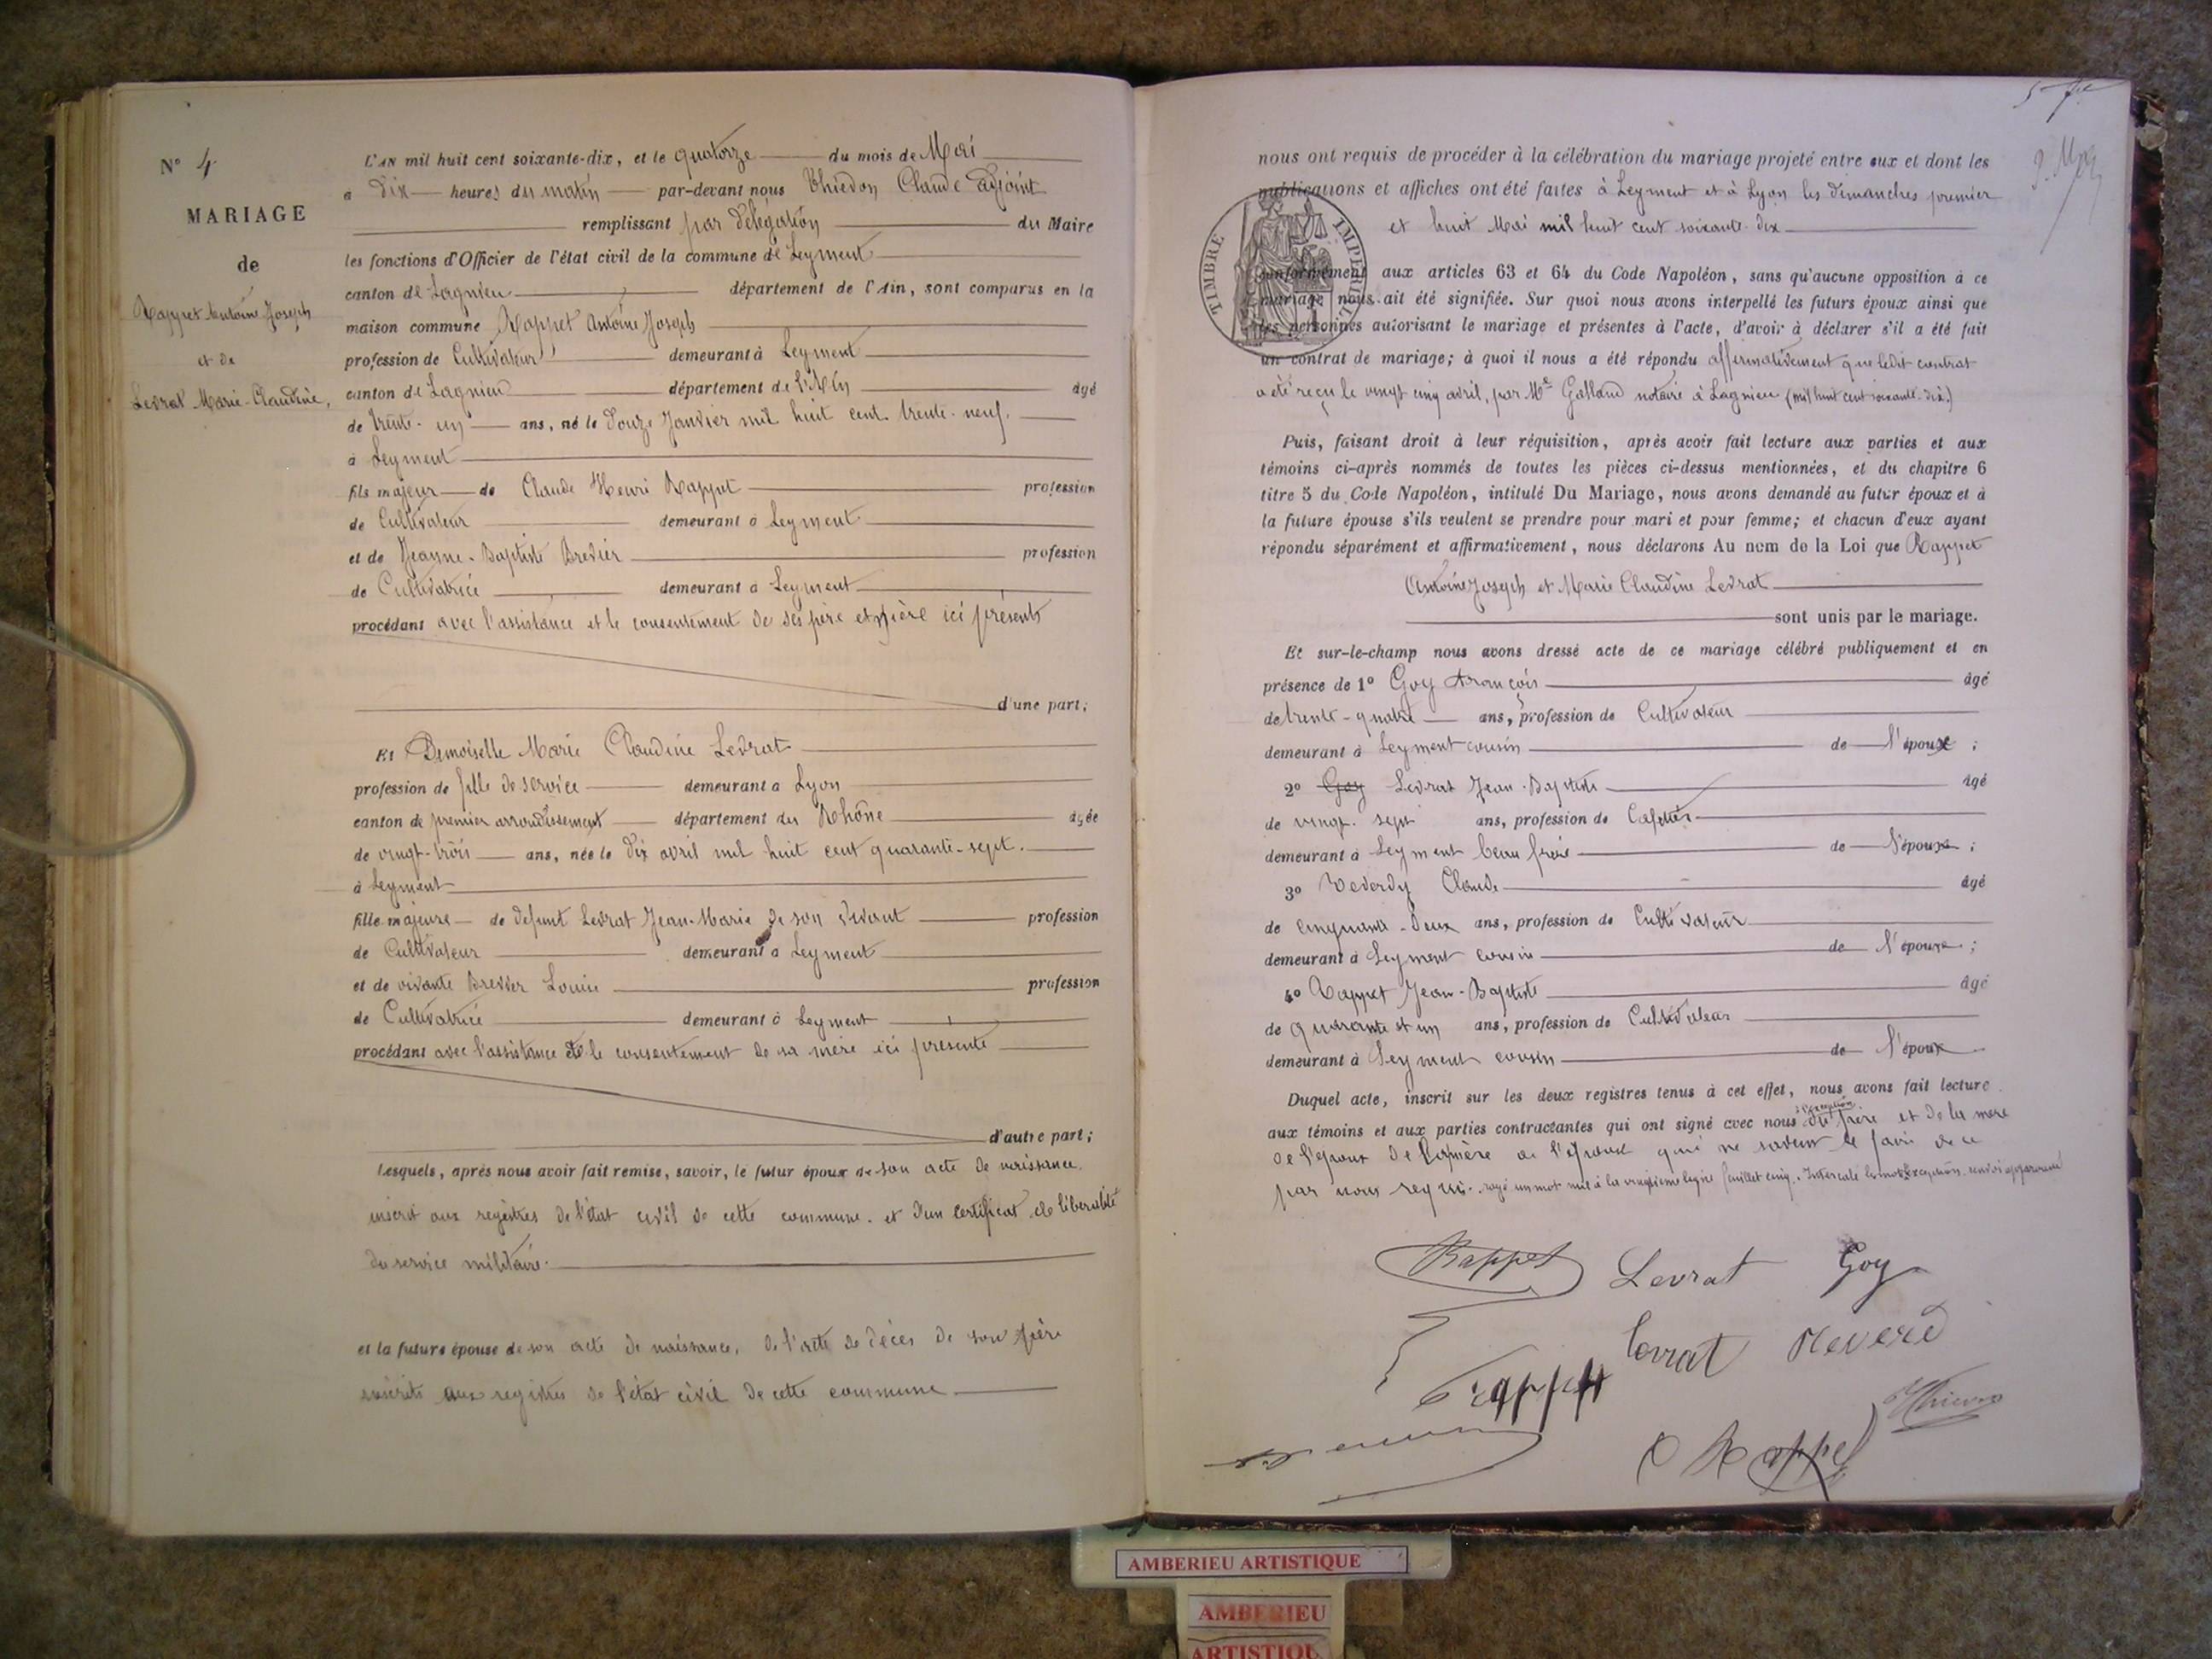 N° 4
MARIAGE
de
Rappet Antoine Joseph
et de
Levrat Marie-Claudine,
L'AN mil huit cent soixante-dix, et le quatorze du mois de Mai
à dix heures du matin par-devant nous Thievon Claude adjoint
remplissant par délégation du Maire
les fonctions d'Officier de l'état civil de la commune de Leyment
canton de Lagnieu département de l'Ain, sont comparus en la
maison commune Rappet Antoine Joseph
profession de Cultivateur demeurant à Leyment
canton de Lagnieu département de l'Ain âgé
de trente-un ans, né le douze Janvier mil huit cent trente-neuf.
à Leyment
fils majeur de Claude Henri Rappet profession
de Cultivateur demeurant à Leyment
et de Jeanne-Baptiste Brevier profession
de Cultivatrice demeurant à Leyment
procédant avec l'assistance et le consentement de ses père et mère ici présents
d'une part;
Et Demoiselle Marie Claudine Levrat
profession de fille de service demeurant à Lyon
canton de premier arrondissement département du Rhône âgée
de vingt-trois ans, née le dix avril mil huit cent quarante-sept.
à Leyment
fille majeure de défunt Levrat Jean-Marie de son vivant profession
de Cultivateur demeurant à Leyment
et de vivante Brevier Louise profession
de Cultivatrice demeurant à Leyment
procédant avec l'assistance et le consentement de sa mère ici présente
d'autre part;
Lesquels, après nous avoir fait remise, savoir, le futur époux de son acte de naissance,
inscrit aux registres de l'état civil de cette commune. et d'un certificat de libérabilité
du service militaire.
et la future épouse de son acte de naissance, de l'acte de décès de son père
inscrits aux registres de l'état civil de cette commune
nous ont requis de procéder à la célébration du mariage projeté entre eux et dont les
publications et affiches ont été faites à Leyment et à Lyon les dimanches premier
et huit Mai mil huit cent soixante-dix
TIMBRE IMPERIAL
conformément aux articles 63 et 64 du Code Napoléon, sans qu'aucune opposition à ce
mariage nous ait été signifiée. Sur quoi nous avons interpellé les futurs époux ainsi que
les personnes autorisant le mariage et présentes à l'acte, d'avoir à déclarer s'il a été fait
un contrat de mariage; à quoi il nous a été répondu affirmativement que ledit contrat
a été reçu le vingt cinq avril, par Me Galland notaire à Lagnieu (mil huit cent soixante-dix.)
Puis, faisant droit à leur réquisition, après avoir fait lecture aux parties et aux
témoins ci-après nommés de toutes les pièces ci-dessus mentionnées, et du chapitre 6
titre 5 du Code Napoléon, intitulé Du Mariage, nous avons demandé au futur époux et à
la future épouse s'ils veulent se prendre pour mari et pour femme; et chacun d'eux ayant
répondu séparément et affirmativement, nous déclarons Au nom de la Loi que Rappet
Antoine Joseph et Marie Claudine Levrat
sont unis par le mariage.
Et sur-le-champ nous avons dressé acte de ce mariage célébré publiquement et en
présence de 1° Goy François âgé
de trente-quatre ans, profession de Cultivateur
demeurant à Leyment cousin de l'époux;
2° Goy Levrat Jean-Baptiste âgé
de vingt-sept ans, profession de Cafetier
demeurant à Leyment beau frère de l'épouse;
3° Reverdy Claude âgé
de cinquante-deux ans, profession de Cultivateur
demeurant à Leyment cousin de l'épouse;
4° Rappet Jean-Baptiste âgé
de quarante et un ans, profession de Cultivateur
demeurant à Leyment cousin de l'époux
Duquel acte, inscrit sur les deux registres tenus à cet effet, nous avons fait lecture
aux témoins et aux parties contractantes qui ont signé avec nous à l'exception du père et de la mère
de l'époux de la mère de l'épouse qui ne savent le faire de ce
par nous requis. rayé un mot nul à la vingtième ligne feuillet cinq. Intercalé exception. renvoi approuvé
Rappet Levrat Goy
Levrat Reverd
Rappet
Thievon
C Rappet
AMBERIEU ARTISTIQUE
AMBERIEU
ARTISTIQU